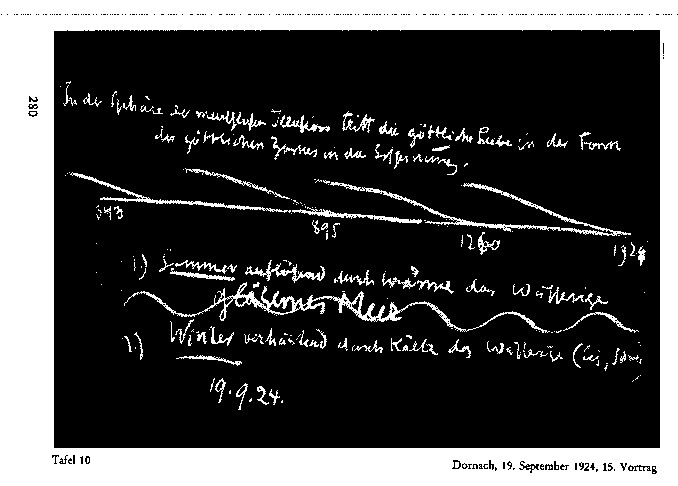 280
In der Sphäre der menschlichen Illusions tritt die göttliche Liebe in der Form
des göttlichen Zornes in die Erscheinung.
343
895
1260
1924
1) Sommer auflösend durch Wärme das Wässerige
gläsernes Meer
2.) Winter verhärtend durch Kälte das Wässerige (Eis,
19.9.24.
Tafel 10
Dornach, 19. September 1924, 15. Vortrag